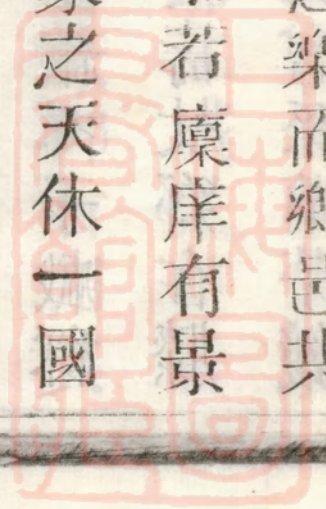 樂而鄉邑共
若廩庠有景
之天休一國